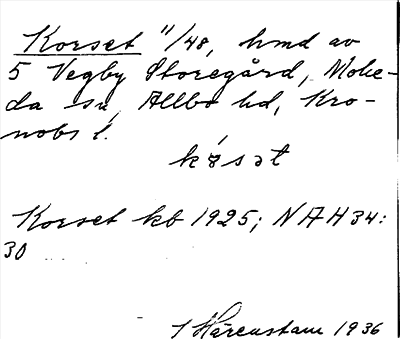 Korset 11/48, hmd av
5 Vegby Storegård, Mohe-
da sn, Allbo hd, Kro-
nobs l.
kɵ́sət
Korset kb 1925; NAH 34:
30
I Hårenstam 1936